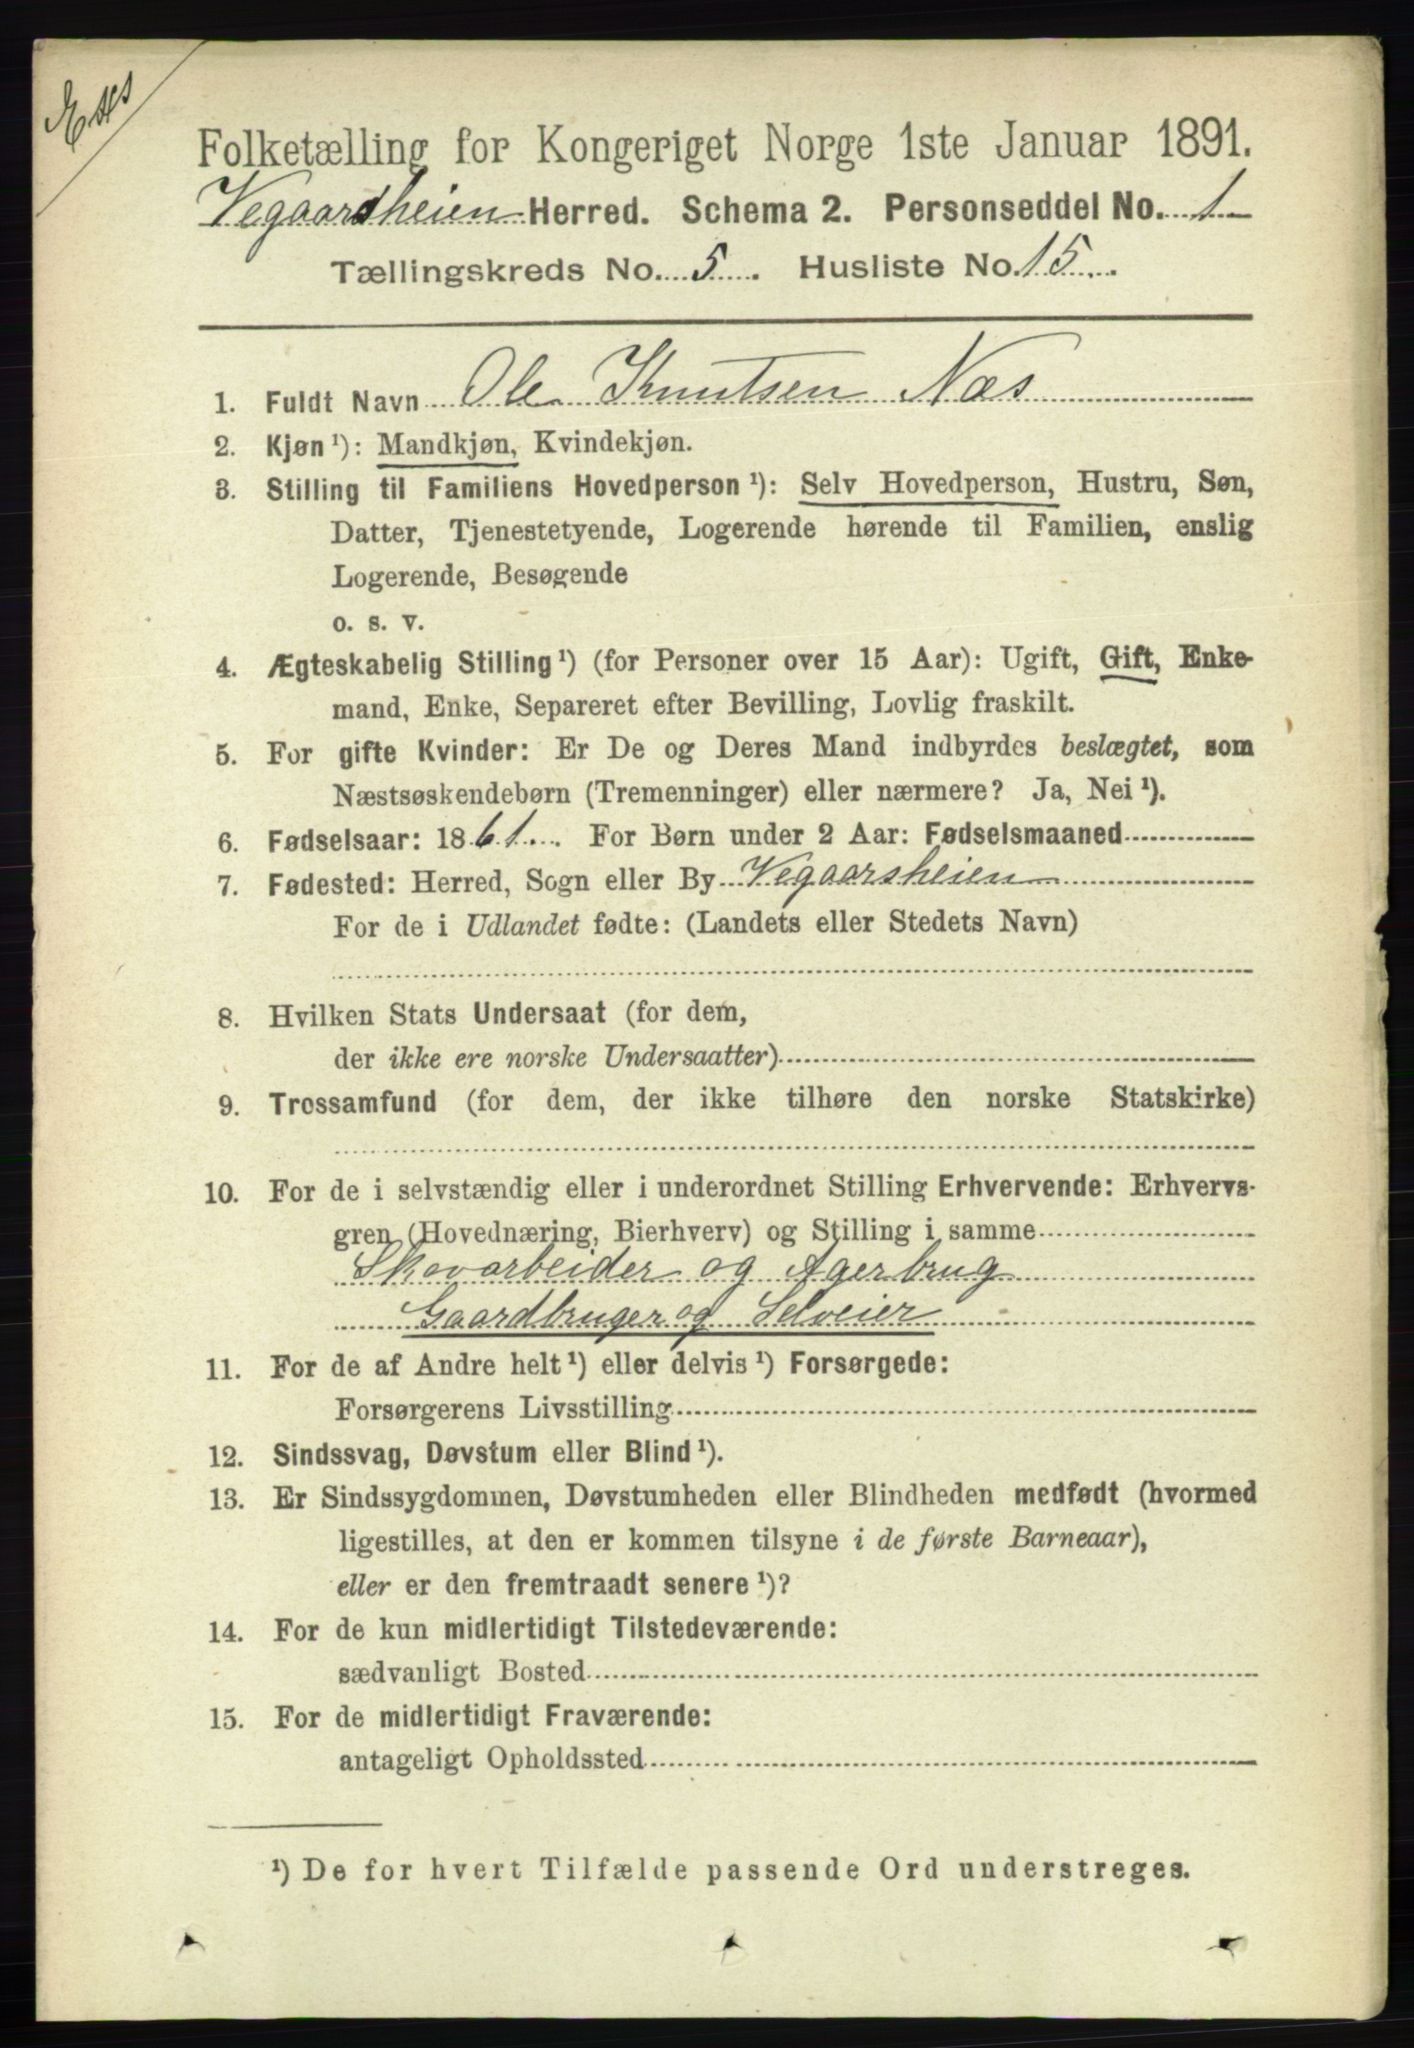 Folketælling for Kongeriget Norge 1ste Januar 1891.
Vegaardsheien Herred. Schema 2. Personseddel No. 1
Tællingskreds No. 5. Husliste No. 15.
1. Fuldt Navn Ole Knutsen Næs
2. Kjøn ¹): Mandkjøn, Kvindekjøn.
3. Stilling til Familiens Hovedperson ¹): Selv Hovedperson, Hustru, Søn,
Datter, Tjenestetyende, Logerende hørende til Familien, enslig
Logerende, Besøgende
o. s. v.
4. Ægteskabelig Stilling ¹) (for Personer over 15 Aar): Ugift, Gift, Enke-
mand, Enke, Separeret efter Bevilling, Lovlig fraskilt.
5. For gifte Kvinder: Er De og Deres Mand indbyrdes beslægtet, som
Næstsøskendebørn (Tremenninger) eller nærmere? Ja, Nei ¹).
6. Fødselsaar: 1861. For Børn under 2 Aar: Fødselsmaaned
7. Fødested: Herred, Sogn eller By Vegaarsheien
For de i Udlandet fødte: (Landets eller Stedets Navn)
8. Hvilken Stats Undersaat (for dem,
der ikke ere norske Undersaatter)
9. Trossamfund (for dem, der ikke tilhøre den norske Statskirke)
10. For de i selvstændig eller i underordnet Stilling Erhvervende: Erhvervs-
gren (Hovednæring, Bierhverv) og Stilling i samme
Skovarbeider og Agerbrug
Gaardbruger og Selveier
11. For de af Andre helt ¹) eller delvis ¹) Forsørgede:
Forsørgerens Livsstilling
12. Sindssvag, Døvstum eller Blind ¹).
13. Er Sindssygdommen, Døvstumheden eller Blindheden medfødt (hvormed
ligestilles, at den er kommen tilsyne i de første Barneaar),
eller er den fremtraadt senere ¹)?
14. For de kun midlertidigt Tilstedeværende:
sædvanligt Bosted
15. For de midlertidigt Fraværende:
antageligt Opholdssted
¹) De for hvert Tilfælde passende Ord understreges.